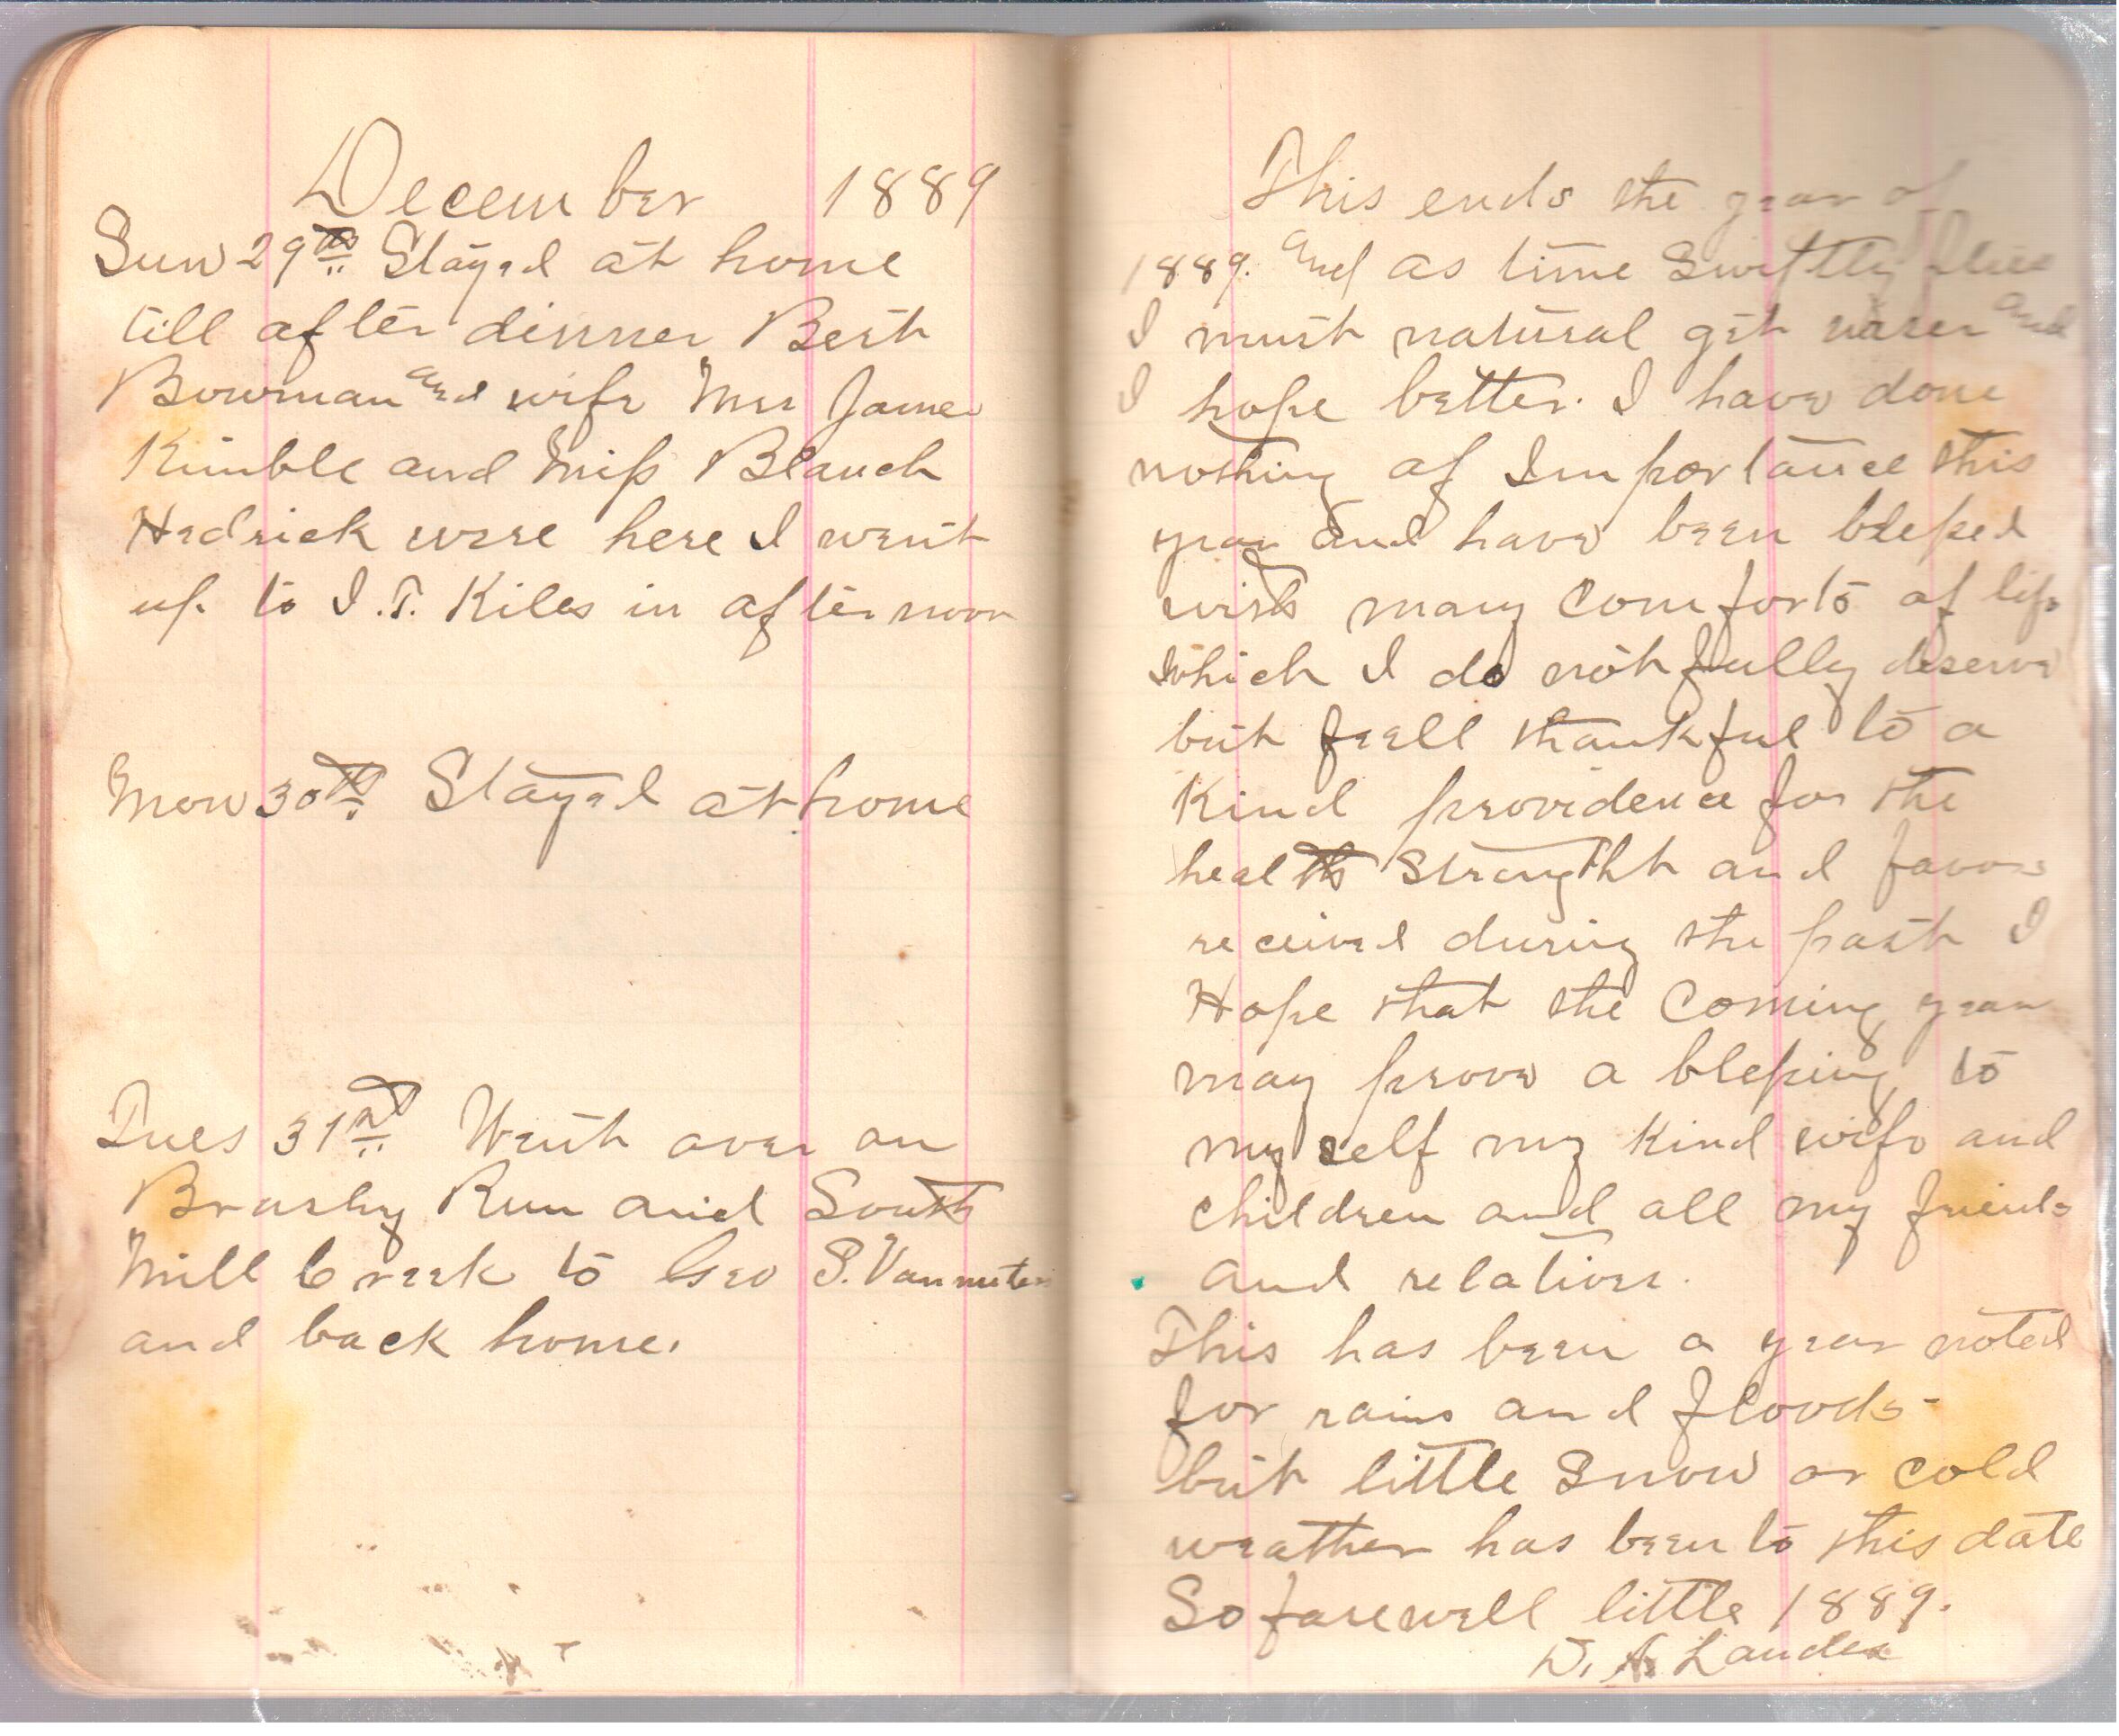 December 1889
Sun 29th Stayed at home
till after dinner Bert
Bowman and wife Mrs James
Kimble and Miss Blanch
Hedrick were here I went
up to I.T. Kiles in afternoon
Mon 30th Stayed at home
Tues 31st Went over on
Brushy Run and South
Mill Creek to Geo S. Vanmeter
and back home.
This ends the year of
1889. and as time swiftly flies
I must natural get wiser and
I hope better. I have done
nothing of Importance this
year and have been blessed
with many comforts of life
which I do not fully deserve
but feell thankful to a
Kind providence for the
health strenghht and favors
received during the past I
Hope that the Coming year
may prove a blessing to
my self my Kind wife and
children and all my friends
and relation.
This has been a year noted
for rains and floods-
but little Snow or cold
weather has been to this date
So farewell little 1889.
D. A. Landes